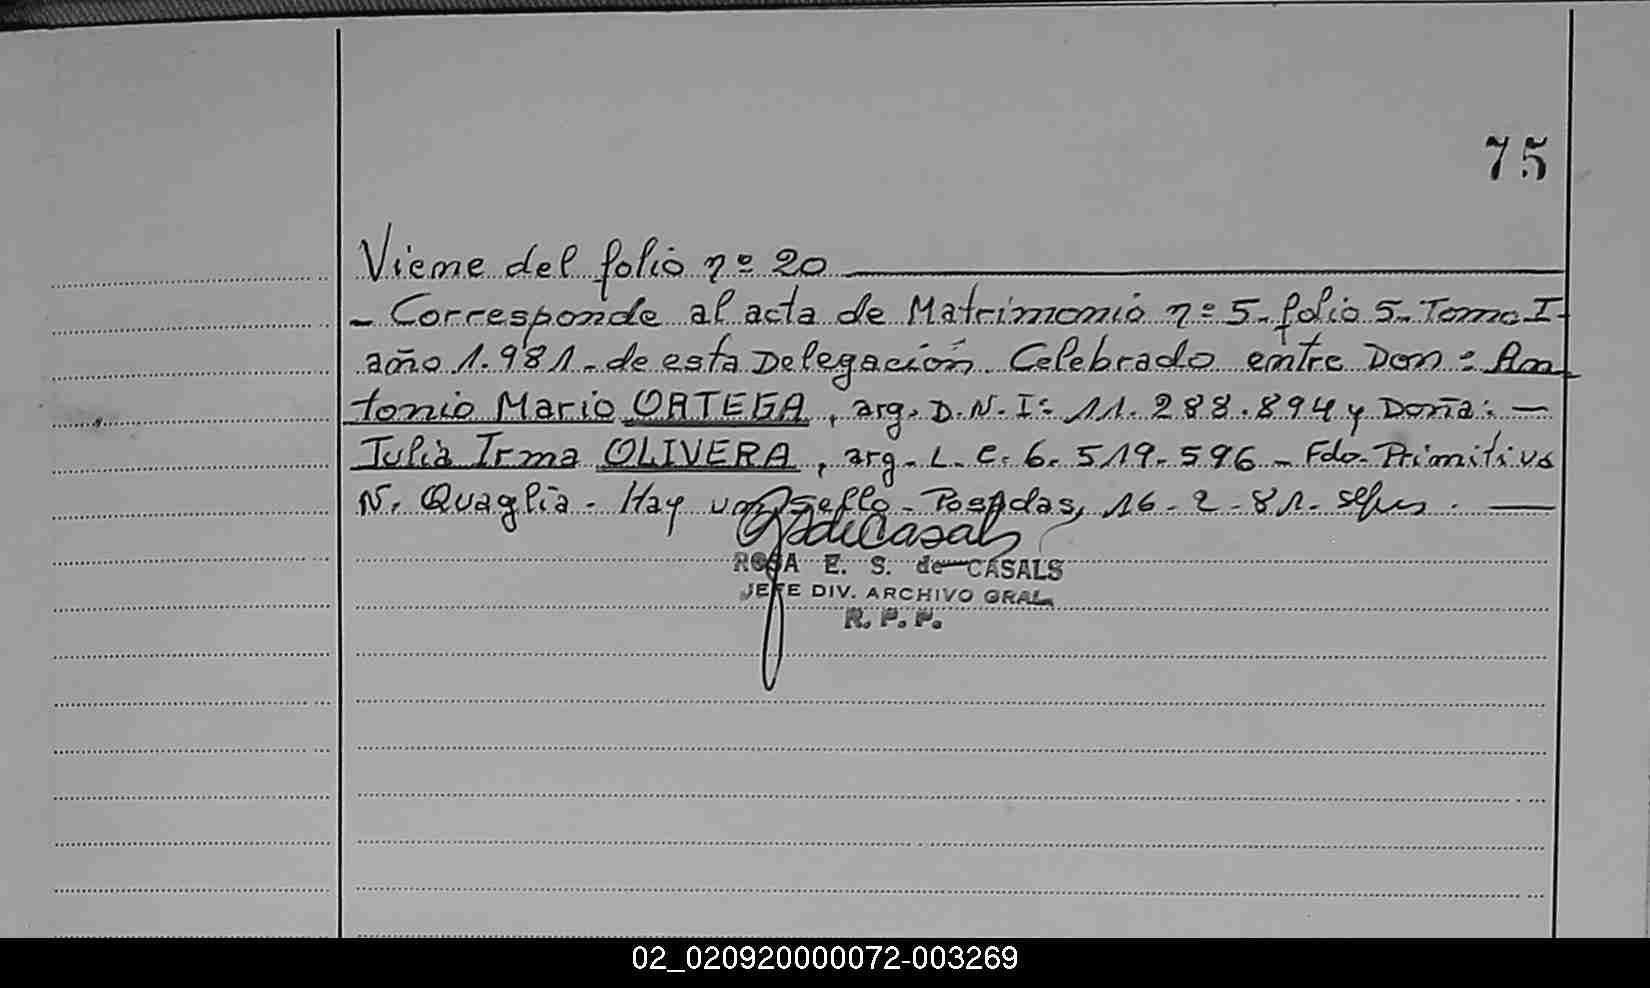 75
Viene del folio nº 20
- Corresponde al acta de Matrimonio nº 5- folio 5- Tomo I-
año 1.981- de esta Delegación. Celebrado entre Don: An
tonio Mario ORTEGA, arg. D.N.I: 11.288.894 y Doña: -
Julia Irma OLIVERA, arg- L.C. 6.519.596 - Fdo- Primitivo
N. Quaglia - Hay un sello - Posadas, 16-2-81-
RdeCasals
ROSA E. S. de CASALS
JEFE DIV. ARCHIVO GRAL
R. P. P.
02_020920000072-003269